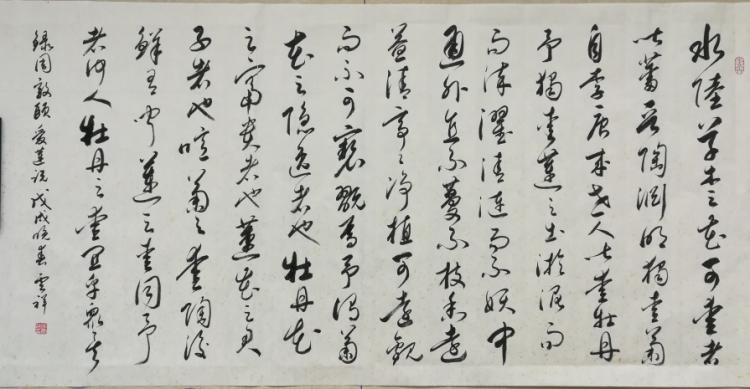 水陸草木之花可愛者
甚蕃晋陶渊明獨愛菊
自李唐来世人甚愛牡丹
予獨愛蓮之出淤泥而
不染濯清涟而不妖中
通外直不蔓不枝香遠
益清亭々净植可遠觀
而不可褻翫焉予谓菊
花之隐逸者也牡丹花
之富貴者也蓮花之君
子者也噫菊之愛陶後
鮮有闻蓮之愛同予
者何人牡丹之愛宜乎眾矣
錄周敦頤愛蓮说戊戌晚春雲祥